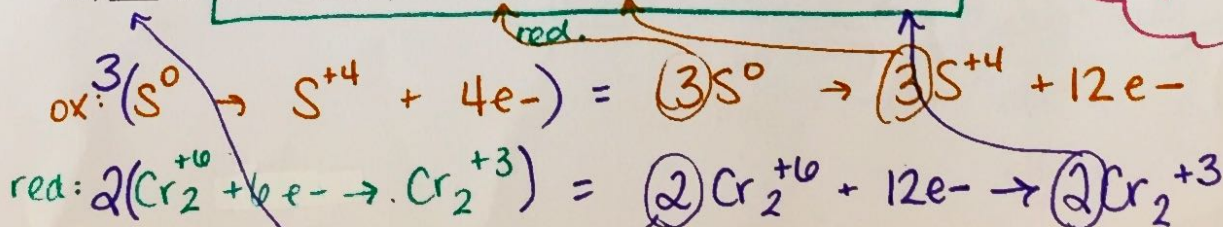 red.
ox: 3(S⁰ → S⁺⁴ + 4e-) = (3)S⁰ → (3)S⁺⁴ + 12e-
red: 2(Cr₂⁺⁶ + 6e- → Cr₂⁺³) = (2)Cr₂⁺⁶ + 12e- → (2)Cr₂⁺³